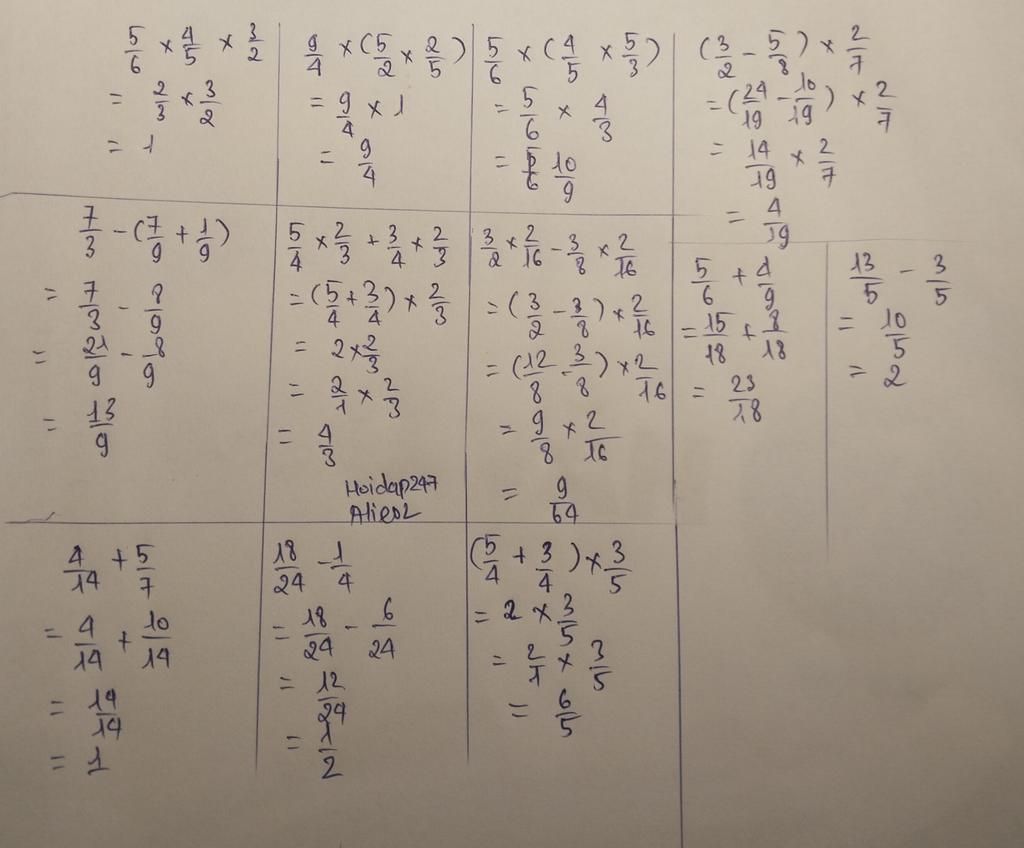 5/6 × 4/5 × 3/2
= 2/3 × 3/2
= 1
9/4 × (5/2 × 2/5)
= 9/4 × 1
= 9/4
5/6 × (4/5 × 5/3)
= 5/6 × 4/3
= 10/9
(3/2 - 5/8) × 2/7
= (24/19 - 10/19) × 2/7
= 14/19 × 2/7
= 4/19
7/3 - (7/9 + 1/9)
= 7/3 - 8/9
= 21/9 - 8/9
= 13/9
5/4 × 2/3 + 3/4 × 2/3
= (5/4 + 3/4) × 2/3
= 2 × 2/3
= 2/1 × 2/3
= 4/3
Hoidap247
Alies2
3/2 × 2/16 - 3/8 × 2/16
= (3/2 - 3/8) × 2/16
= (12/8 - 3/8) × 2/16
= 9/8 × 2/16
= 9/64
5/6 + 4/9
= 15/18 + 8/18
= 23/18
13/5 - 3/5
= 10/5
= 2
4/14 + 5/7
= 4/14 + 10/14
= 14/14
= 1
18/24 - 1/4
= 18/24 - 6/24
= 12/24
= 1/2
(5/4 + 3/4) × 3/5
= 2 × 3/5
= 2/1 × 3/5
= 6/5